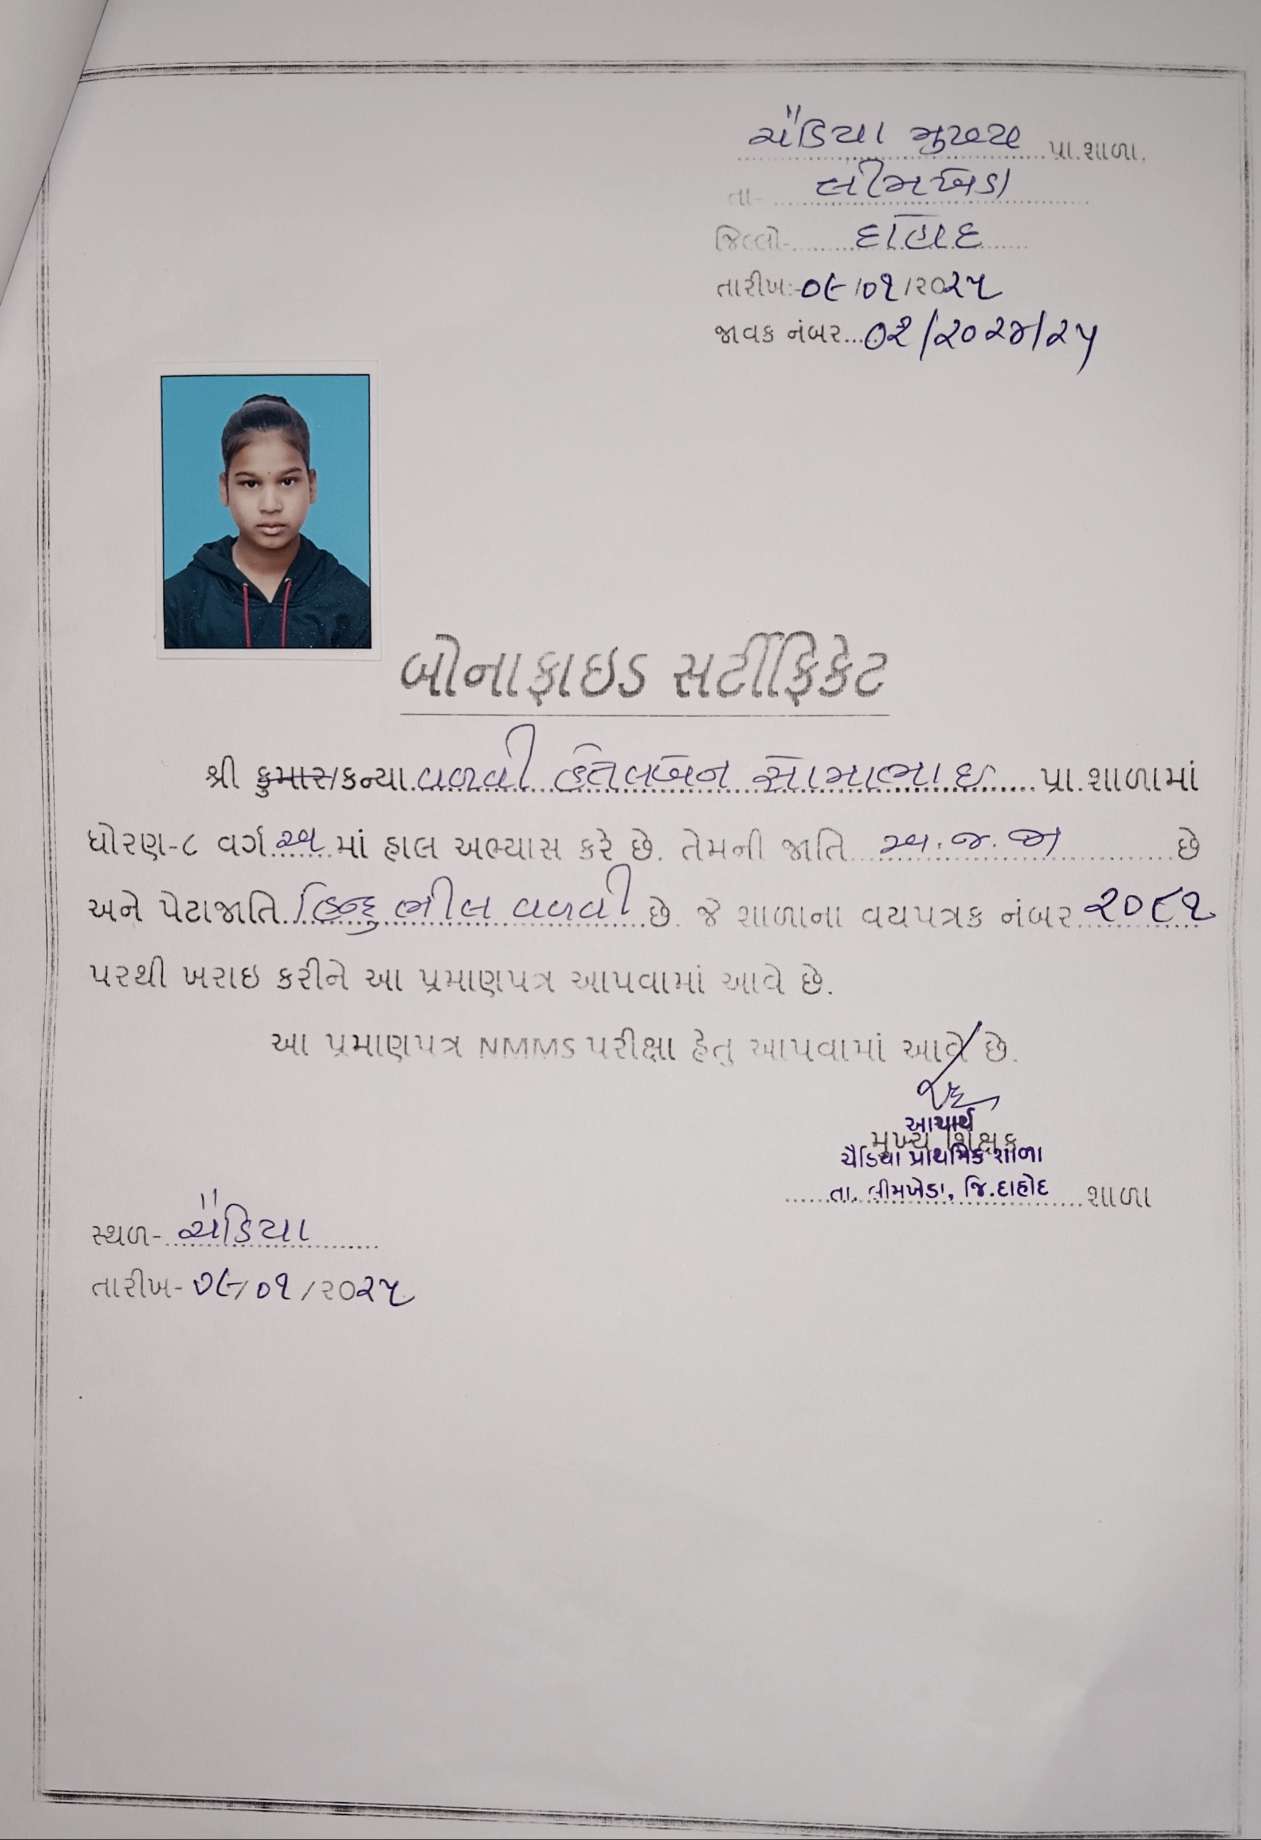 ચૈડિયા મુખ્ય પ્રા.શાળા.
તા- લીમખેડા
જિલ્લો- દાહોદ
તારીખ:- ૦૯/૦૧/૨૦૨૫
જાવક નંબર...૦૨/૨૦૨૪/૨૫
બોનાફાઇડ સર્ટીફિકેટ
શ્રી કુમાર/કન્યા વળવી સોમાભાઇ પ્રા.શાળામાં
ધોરણ-૮ વર્ગ અ માં હાલ અભ્યાસ કરે છે. તેમની જાતિ અ.જ.જા છે
અને પેટાજાતિ હિન્દુ ભીલ વળવી છે. જે શાળાના વયપત્રક નંબર ૨૦૮૧
પરથી ખરાઇ કરીને આ પ્રમાણપત્ર આપવામાં આવે છે.
આ પ્રમાણપત્ર NMMS પરીક્ષા હેતુ આપવામાં આવે છે.
આચાર્ય
મુખ્ય શિક્ષક
ચૈડિયા પ્રાથમિક શાળા
તા. લીમખેડા, જિ.દાહોદ શાળા
સ્થળ- ચૈડિયા
તારીખ- ૦૯/૦૧/૨૦૨૫